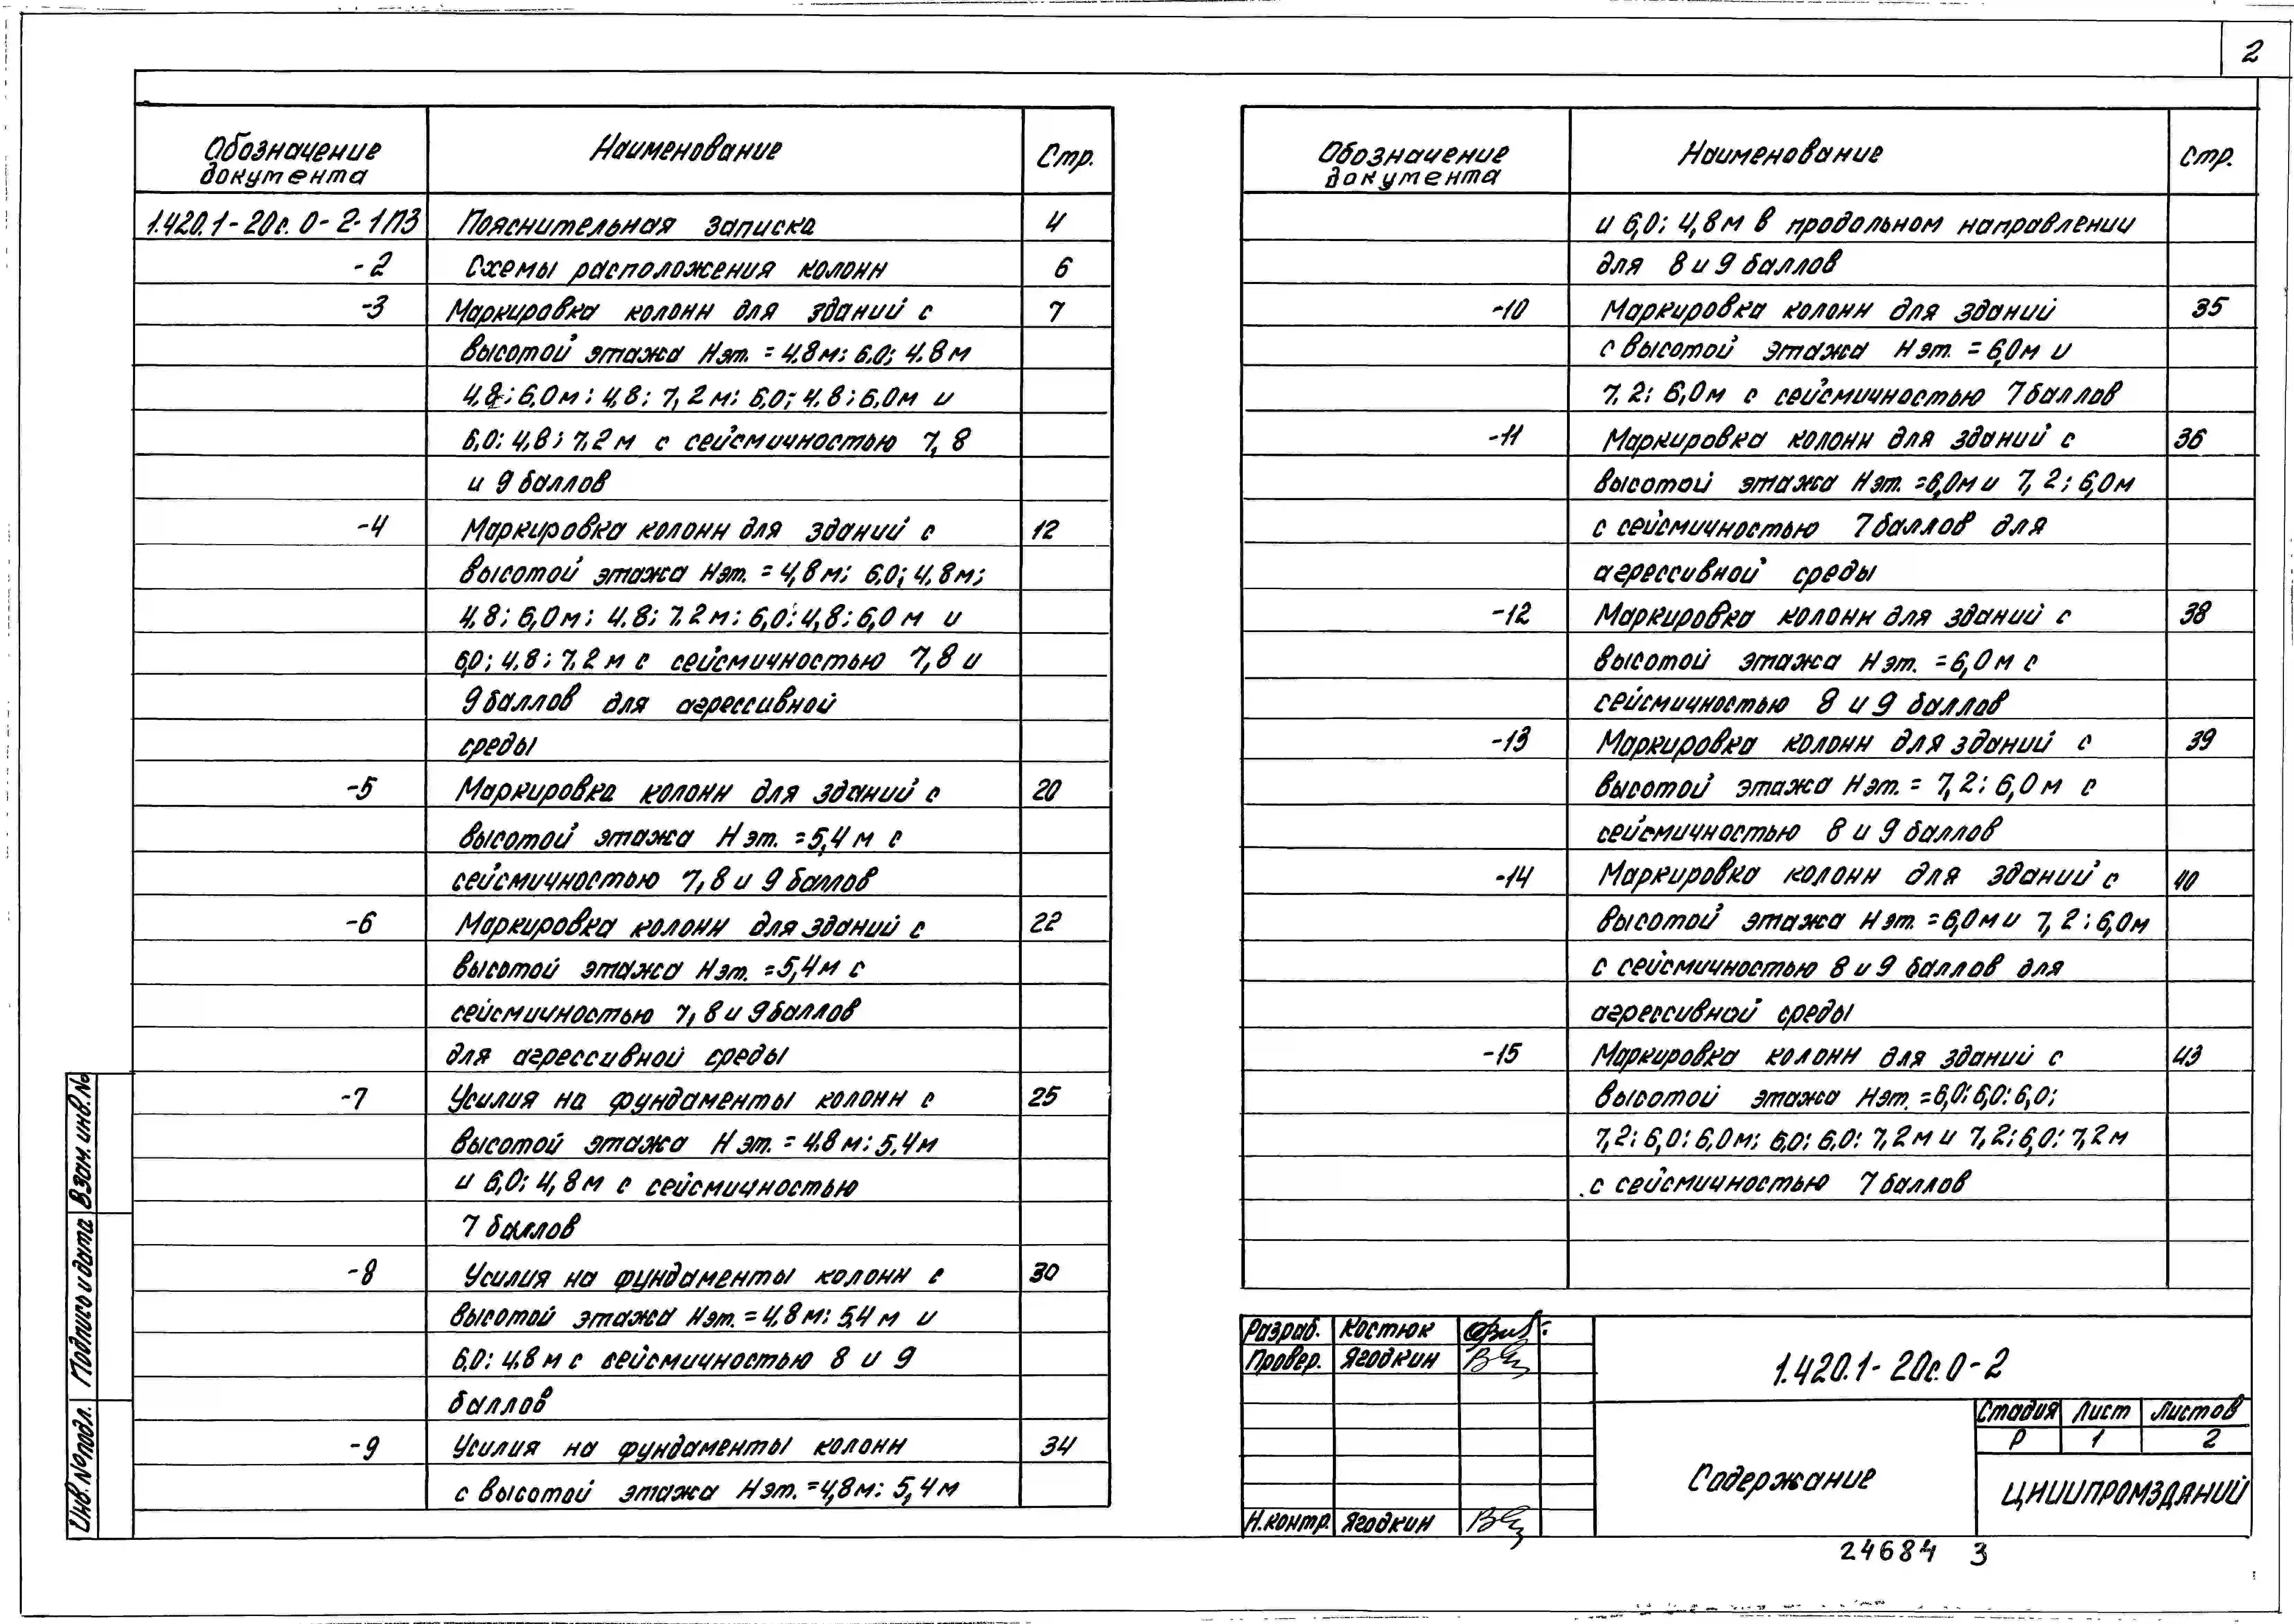 2
Обозначение документа Наименование Стр.
1.420.1-20с.0-2-1ПЗ Пояснительная записка 4
-2 Схемы расположения колонн 6
-3 Маркировка колонн для зданий с 7
высотой этажа Нэт. = 4.8м; 6.0; 4.8м
4.8; 6,0м; 4,8; 7,2м; 6,0; 4.8; 6.0м и
6,0; 4,8; 7,2м с сейсмичностью 7, 8
и 9 баллов
-4 Маркировка колонн для зданий с 12
высотой этажа Нэт. = 4,8м; 6.0; 4.8м;
4.8; 6,0м; 4.8; 7.2м; 6,0; 4,8; 6,0м и
6,0; 4.8; 7.2м с сейсмичностью 7,8 и
9 баллов для агрессивной
среды
-5 Маркировка колонн для зданий с 20
высотой этажа Нэт. = 5,4м с
сейсмичностью 7,8 и 9 баллов
-6 Маркировка колонн для зданий с 22
высотой этажа Нэт. = 5,4м с
сейсмичностью 7,8 и 9 баллов
для агрессивной среды
-7 Усилия на фундаменты колонн с 25
высотой этажа Нэт. = 4.8м; 5,4м
и 6,0; 4,8м с сейсмичностью
7 баллов
-8 Усилия на фундаменты колонн с 30
высотой этажа Нэт. = 4,8м; 5,4м и
6,0; 4.8м с сейсмичностью 8 и 9
баллов
-9 Усилия на фундаменты колонн 34
с высотой этажа Нэт. = 4,8м; 5,4м
Обозначение документа Наименование Стр.
и 6,0; 4,8м в продольном направлении
для 8 и 9 баллов
-10 Маркировка колонн для зданий 35
с высотой этажа Нэт. = 6,0м и
7.2; 6,0м с сейсмичностью 7 баллов
-11 Маркировка колонн для зданий с 36
высотой этажа Нэт. = 6,0м и 7,2; 6,0м
с сейсмичностью 7 баллов для
агрессивной среды
-12 Маркировка колонн для зданий с 38
высотой этажа Нэт. = 6,0м с
сейсмичностью 8 и 9 баллов
-13 Маркировка колонн для зданий с 39
высотой этажа Нэт. = 7,2; 6,0м с
сейсмичностью 8 и 9 баллов
-14 Маркировка колонн для зданий с 40
высотой этажа Нэт. = 6,0м и 7,2; 6,0м
с сейсмичностью 8 и 9 баллов для
агрессивной среды
-15 Маркировка колонн для зданий с 43
высотой этажа Нэт. = 6,0; 6,0; 6,0;
7,2; 6,0; 6,0м; 6,0; 6,0; 7,2м и 7,2; 6,0; 7,2м
с сейсмичностью 7 баллов
Разраб. Костюк
Провер. Ягодкин
Н.контр. Ягодкин
1.420.1-20с.0-2
Содержание
Стадия Лист Листов
Р 1 2
ЦНИИПРОМЗДАНИЙ
24684 3
Взам. инв.№
Подпись и дата
Инв.№подл.